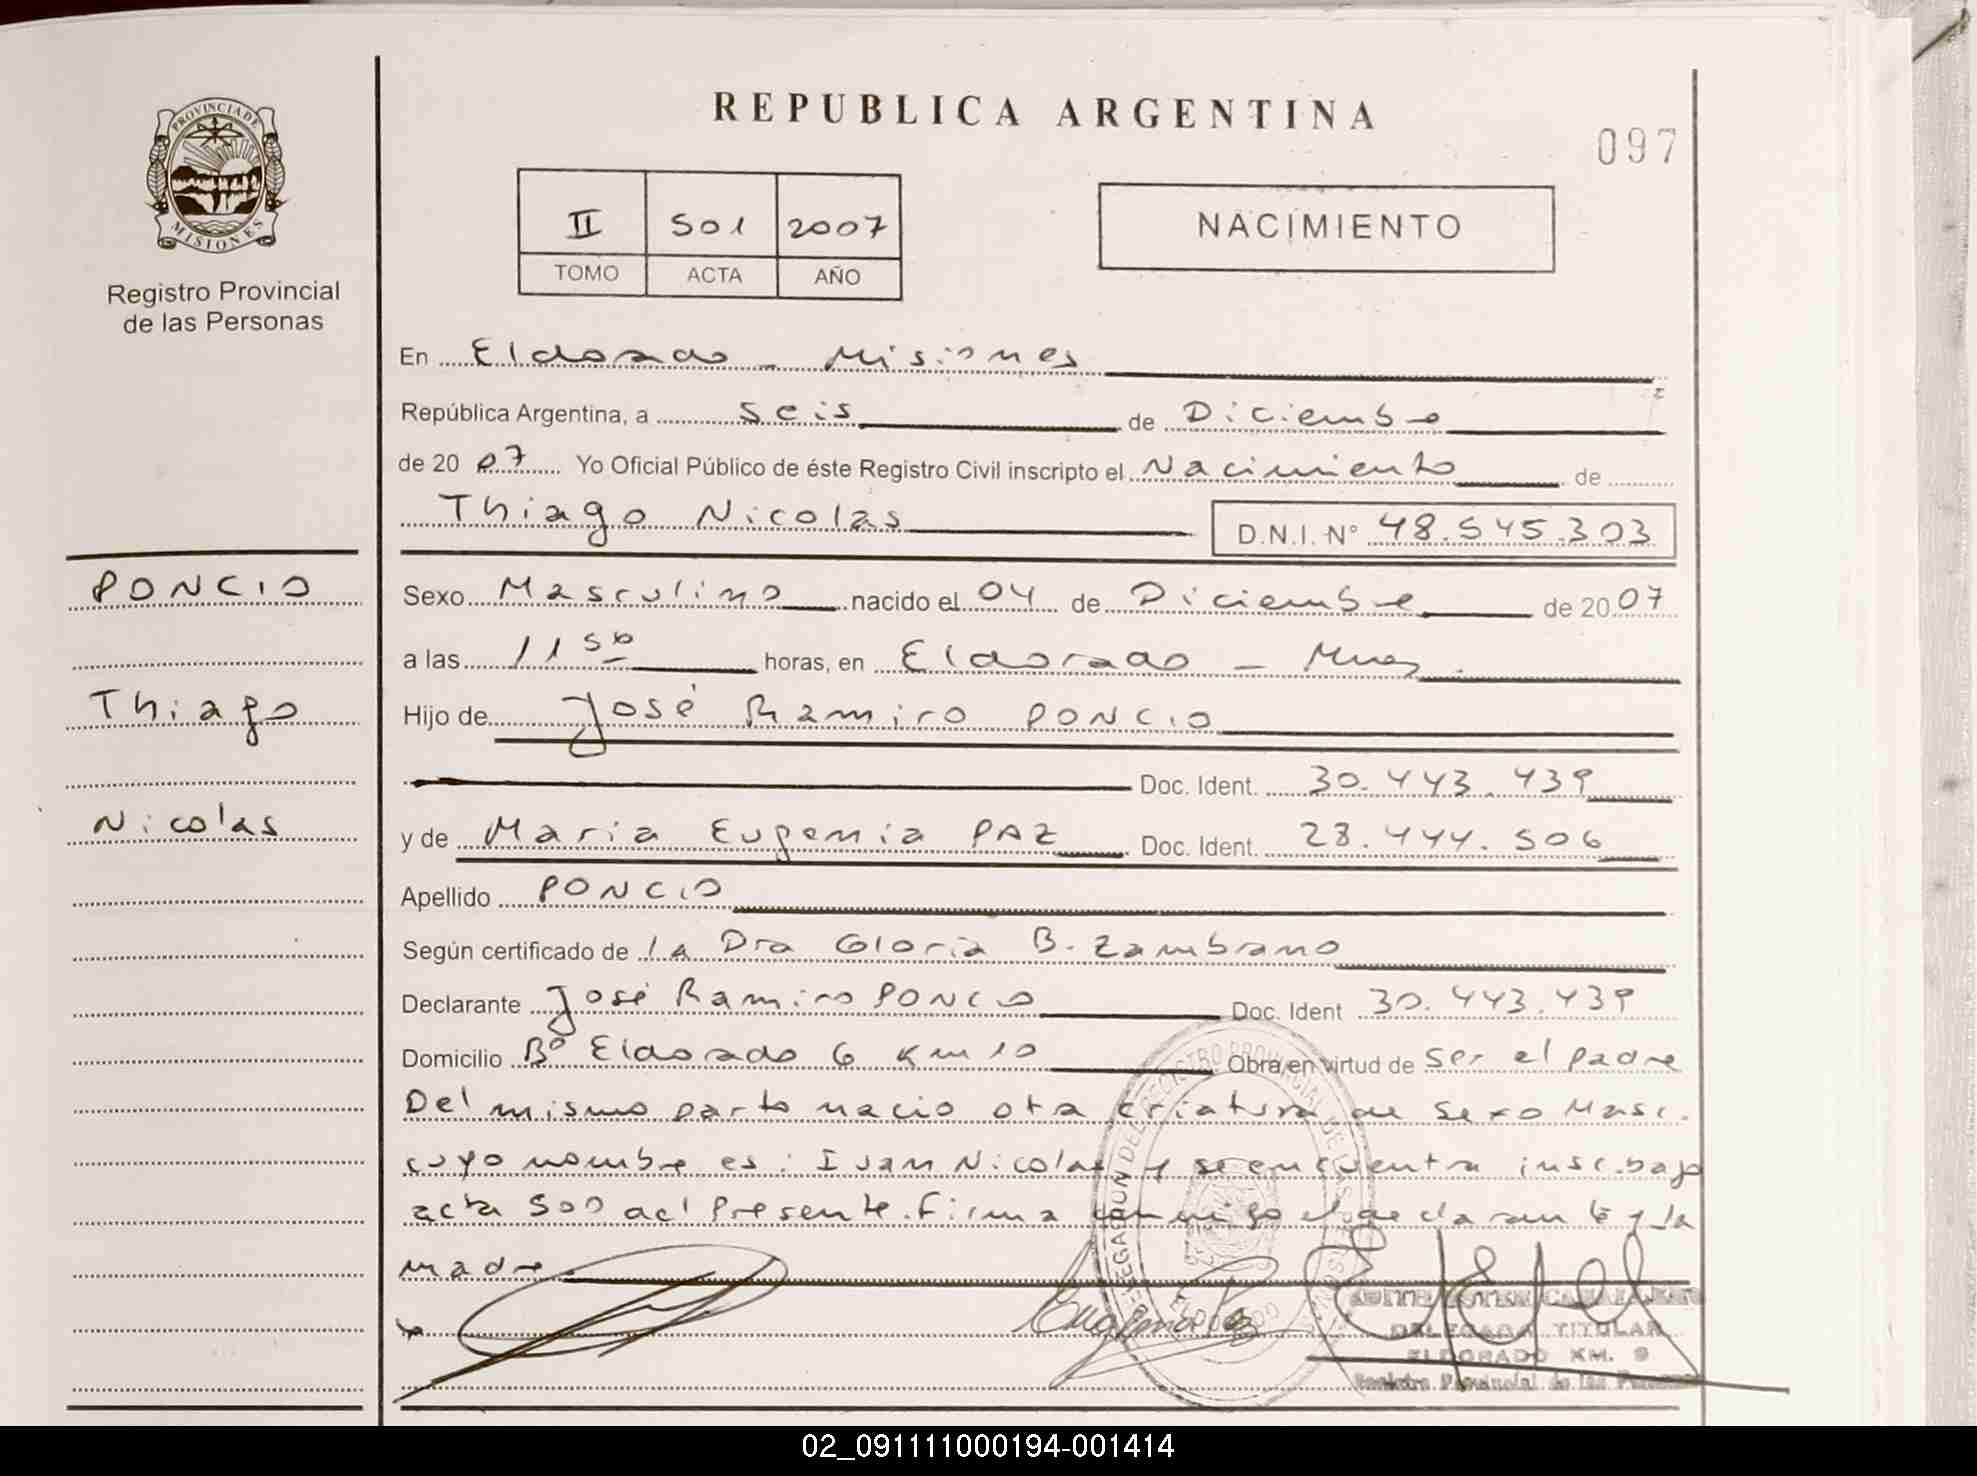 REPUBLICA ARGENTINA
097
PROVINCIA DE
MISIONES
Registro Provincial
de las Personas
II 501 2007
TOMO ACTA AÑO
NACIMIENTO
En Eldorado - Misiones
República Argentina, a seis de Diciembre
de 20 07 Yo Oficial Público de éste Registro Civil inscripto el Nacimiento de
Thiago Nicolas D.N.I. Nº 48.545.303
PONCIO
Thiago
Nicolas
Sexo Masculino nacido el 04 de Diciembre de 20 07
a las 11 50 horas, en Eldorado - Mnes.
Hijo de José Ramiro PONCIO
Doc. Ident. 30.443.439
y de Maria Eugenia PAZ Doc. Ident. 28.444.506
Apellido PONCIO
Según certificado de la Dra Gloria B. Zambrano
Declarante José Ramiro PONCIO Doc. Ident 30.443.439
Domicilio Bº Eldorado 6 Km 10 Obra en virtud de ser el padre
Del mismo parto nacio otra criatura de sexo Masc.
cuyo nombre es: Ivan Nicolas y se encuentra insc. bajo
acta 500 del presente. Firma conmigo el declarante y la
madre.
DELEGACION DEL REGISTRO PROVINCIAL DE LAS PERSONAS
ELDORADO
Eugenia Paz
DELEGADA TITULAR
ELDORADO KM. 9
Registro Provincial de las Personas
02_091111000194-001414